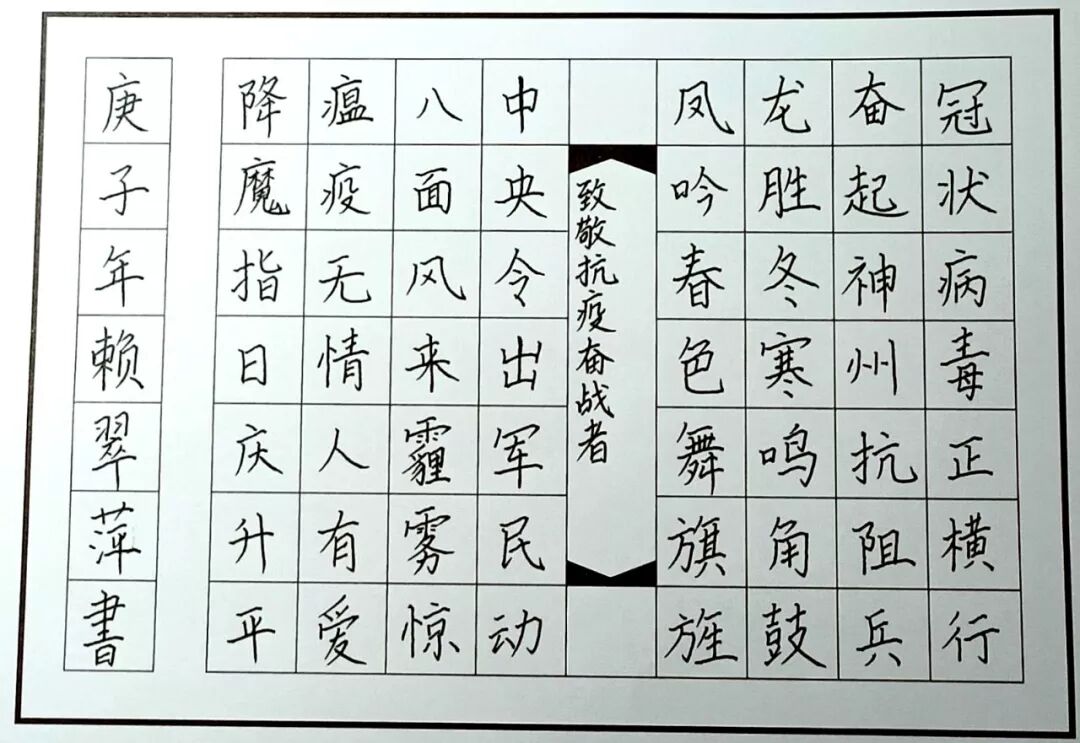 冠状病毒正横行
奋起神州抗阻兵
龙胜冬寒鸣角鼓
凤吟春色舞旗旌
致敬抗疫奋战者
中央令出军民动
八面风来霾雾惊
瘟疫无情人有爱
降魔指日庆升平
庚子年赖翠萍書